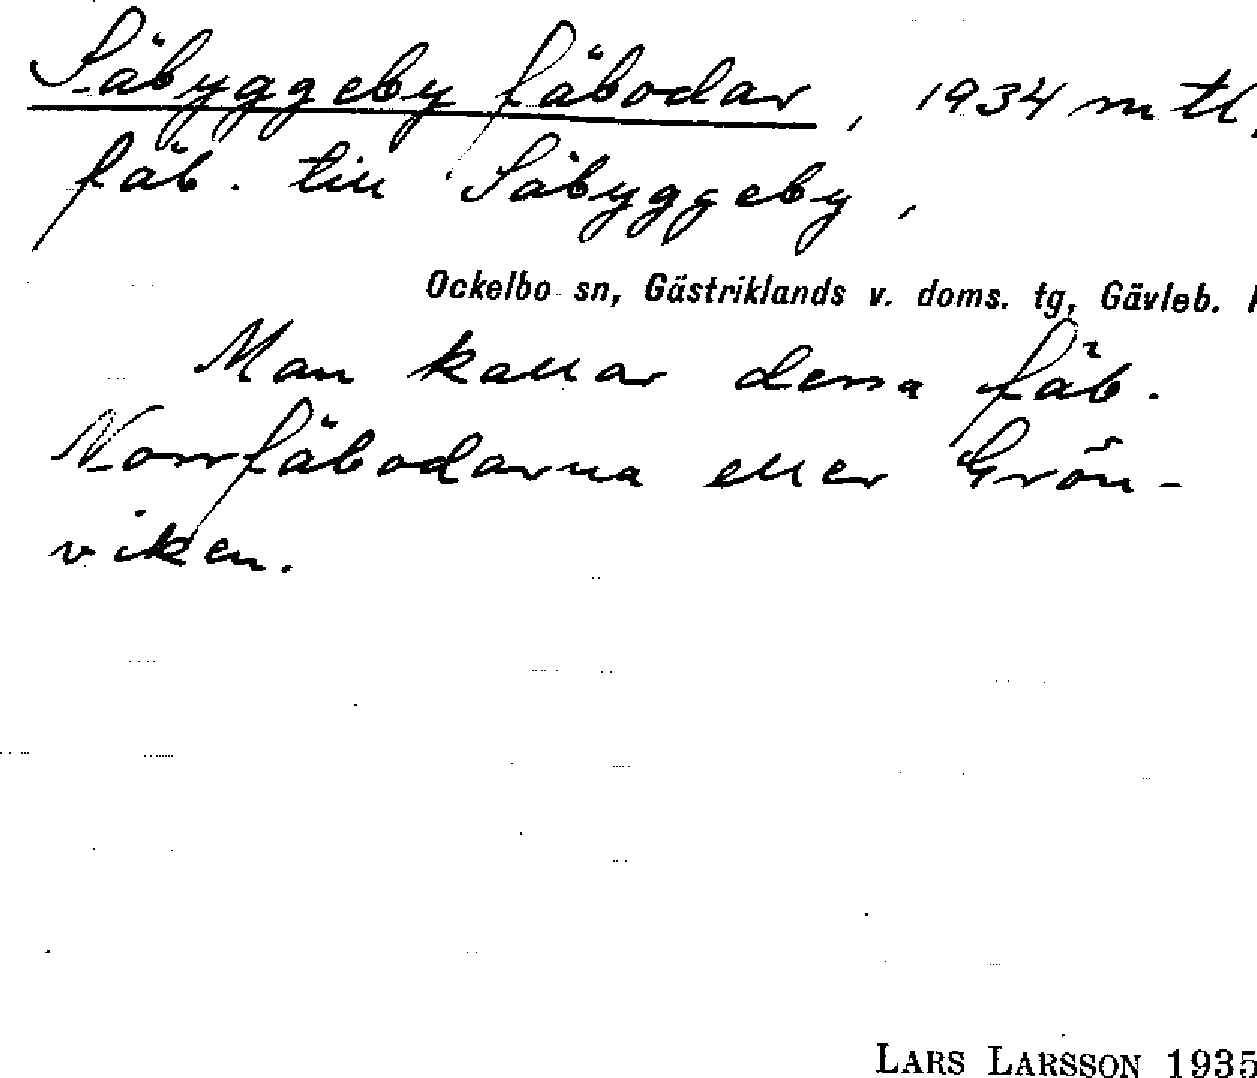 Säbyggeby fäbodar, 1934 mtl,
fäb. till Säbyggeby,
Ockelbo sn, Gästriklands v. doms. tg, Gävleb.
Man kallar dessa fäb.
Norrfäbodarna eller Grön-
viken.
LARS LARSSON 1935